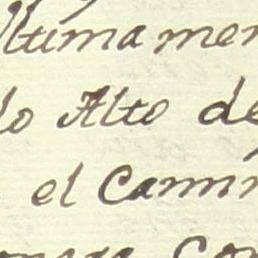 Ultimamen
lo Alto de
el Camin